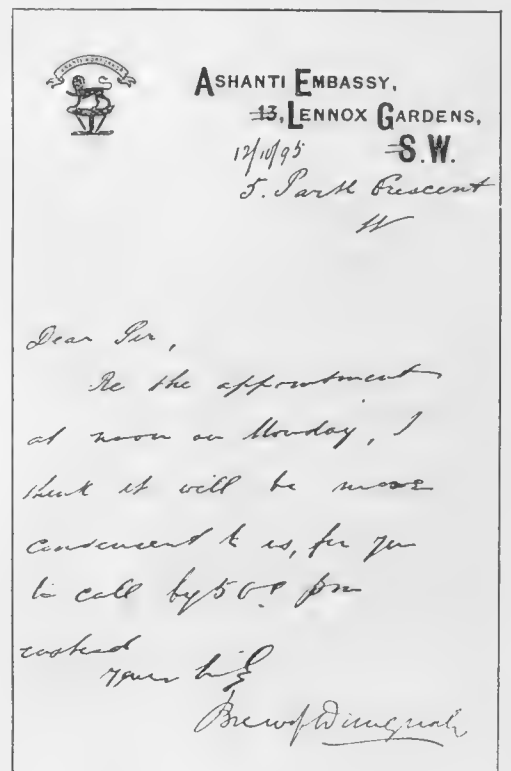 ASHANTI EMBASSY,
13, LENNOX GARDENS,
S.W.
12/10/95
5. Park Crescent
W
Dear Sir,
Re the appointment
at noon on Monday, I
think it will be more
convenient to us, for you
to call by 5 o'c pm
instead
yours